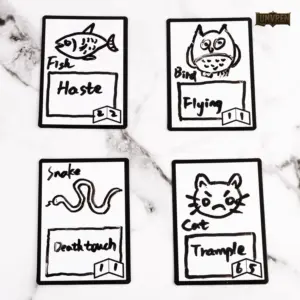 Fish
Haste
2 2
Bird
Flying
1 1
Snake
Deathtouch
1 1
Cat
Trample
6 5